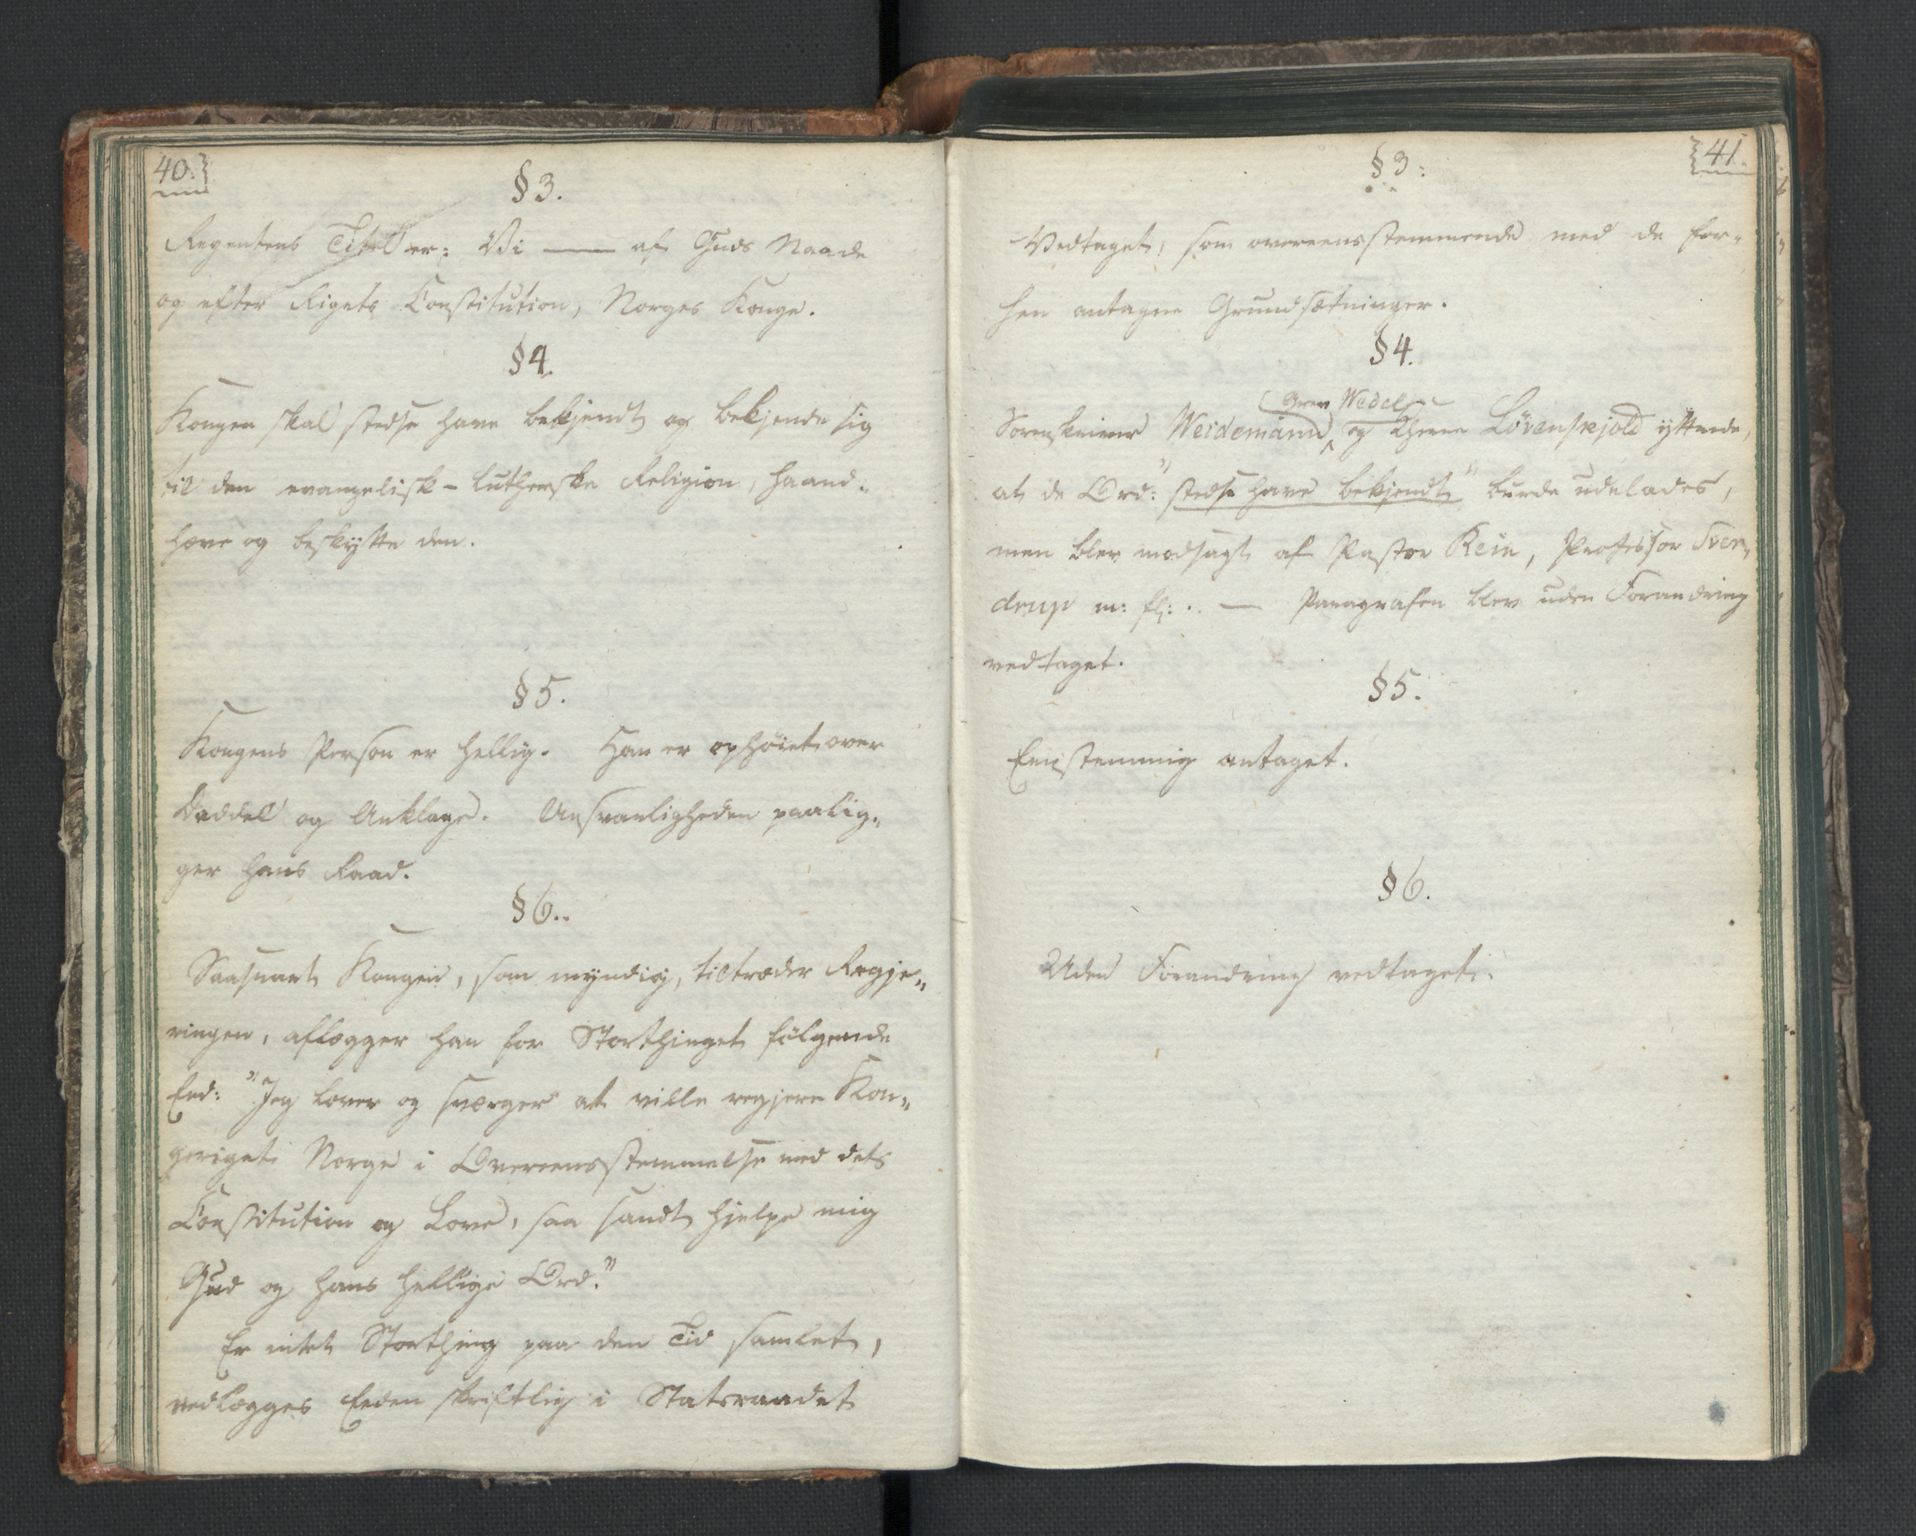 40.
§3.
Regentens Titel er: Vi —— af Guds Naade
og efter Rigets Constitution, Norges Konge.
§4.
Kongen skal stedse have bekjendt og bekjende sig
til den evangelisk-lutherske Religion, haand-
hæve og beskytte den.
§5.
Kongens Person er hellig. Han er ophöiet over
Daddel og Anklage. Ansvarligheden paalig-
ger hans Raad.
§6.
Saasnart Kongen, som myndig, tiltræder Regje-
ringen, aflægger han for Storthinget fölgende
Eed: "Jeg lover og sværger at ville regjere Kon-
geriget Norge i Overeensstemmelse med dets
Constitution og Love, saa sandt hjelpe mig
Gud og hans hellige Ord."
Er intet Storthing paa den Tid samlet,
nedlægges Eeden skriftlig i Statsraadet
41.
§3.
Vedtaget, som overeensstemmende med de for-
hen antagne Grundsætninger.
§4.
Grev Wedel
Sorenskriver Weidemann og Løvenskjold yttrede,
at de Ord: "stedse have bekjendt" burde udelades,
men blev modsagt af Pastor Rein, Professor Sver-
drup m: fl: — Paragrafen blev uden Forandring
vedtaget.
§5.
Eenstemmig antaget.
§6.
Uden Forandring vedtaget.